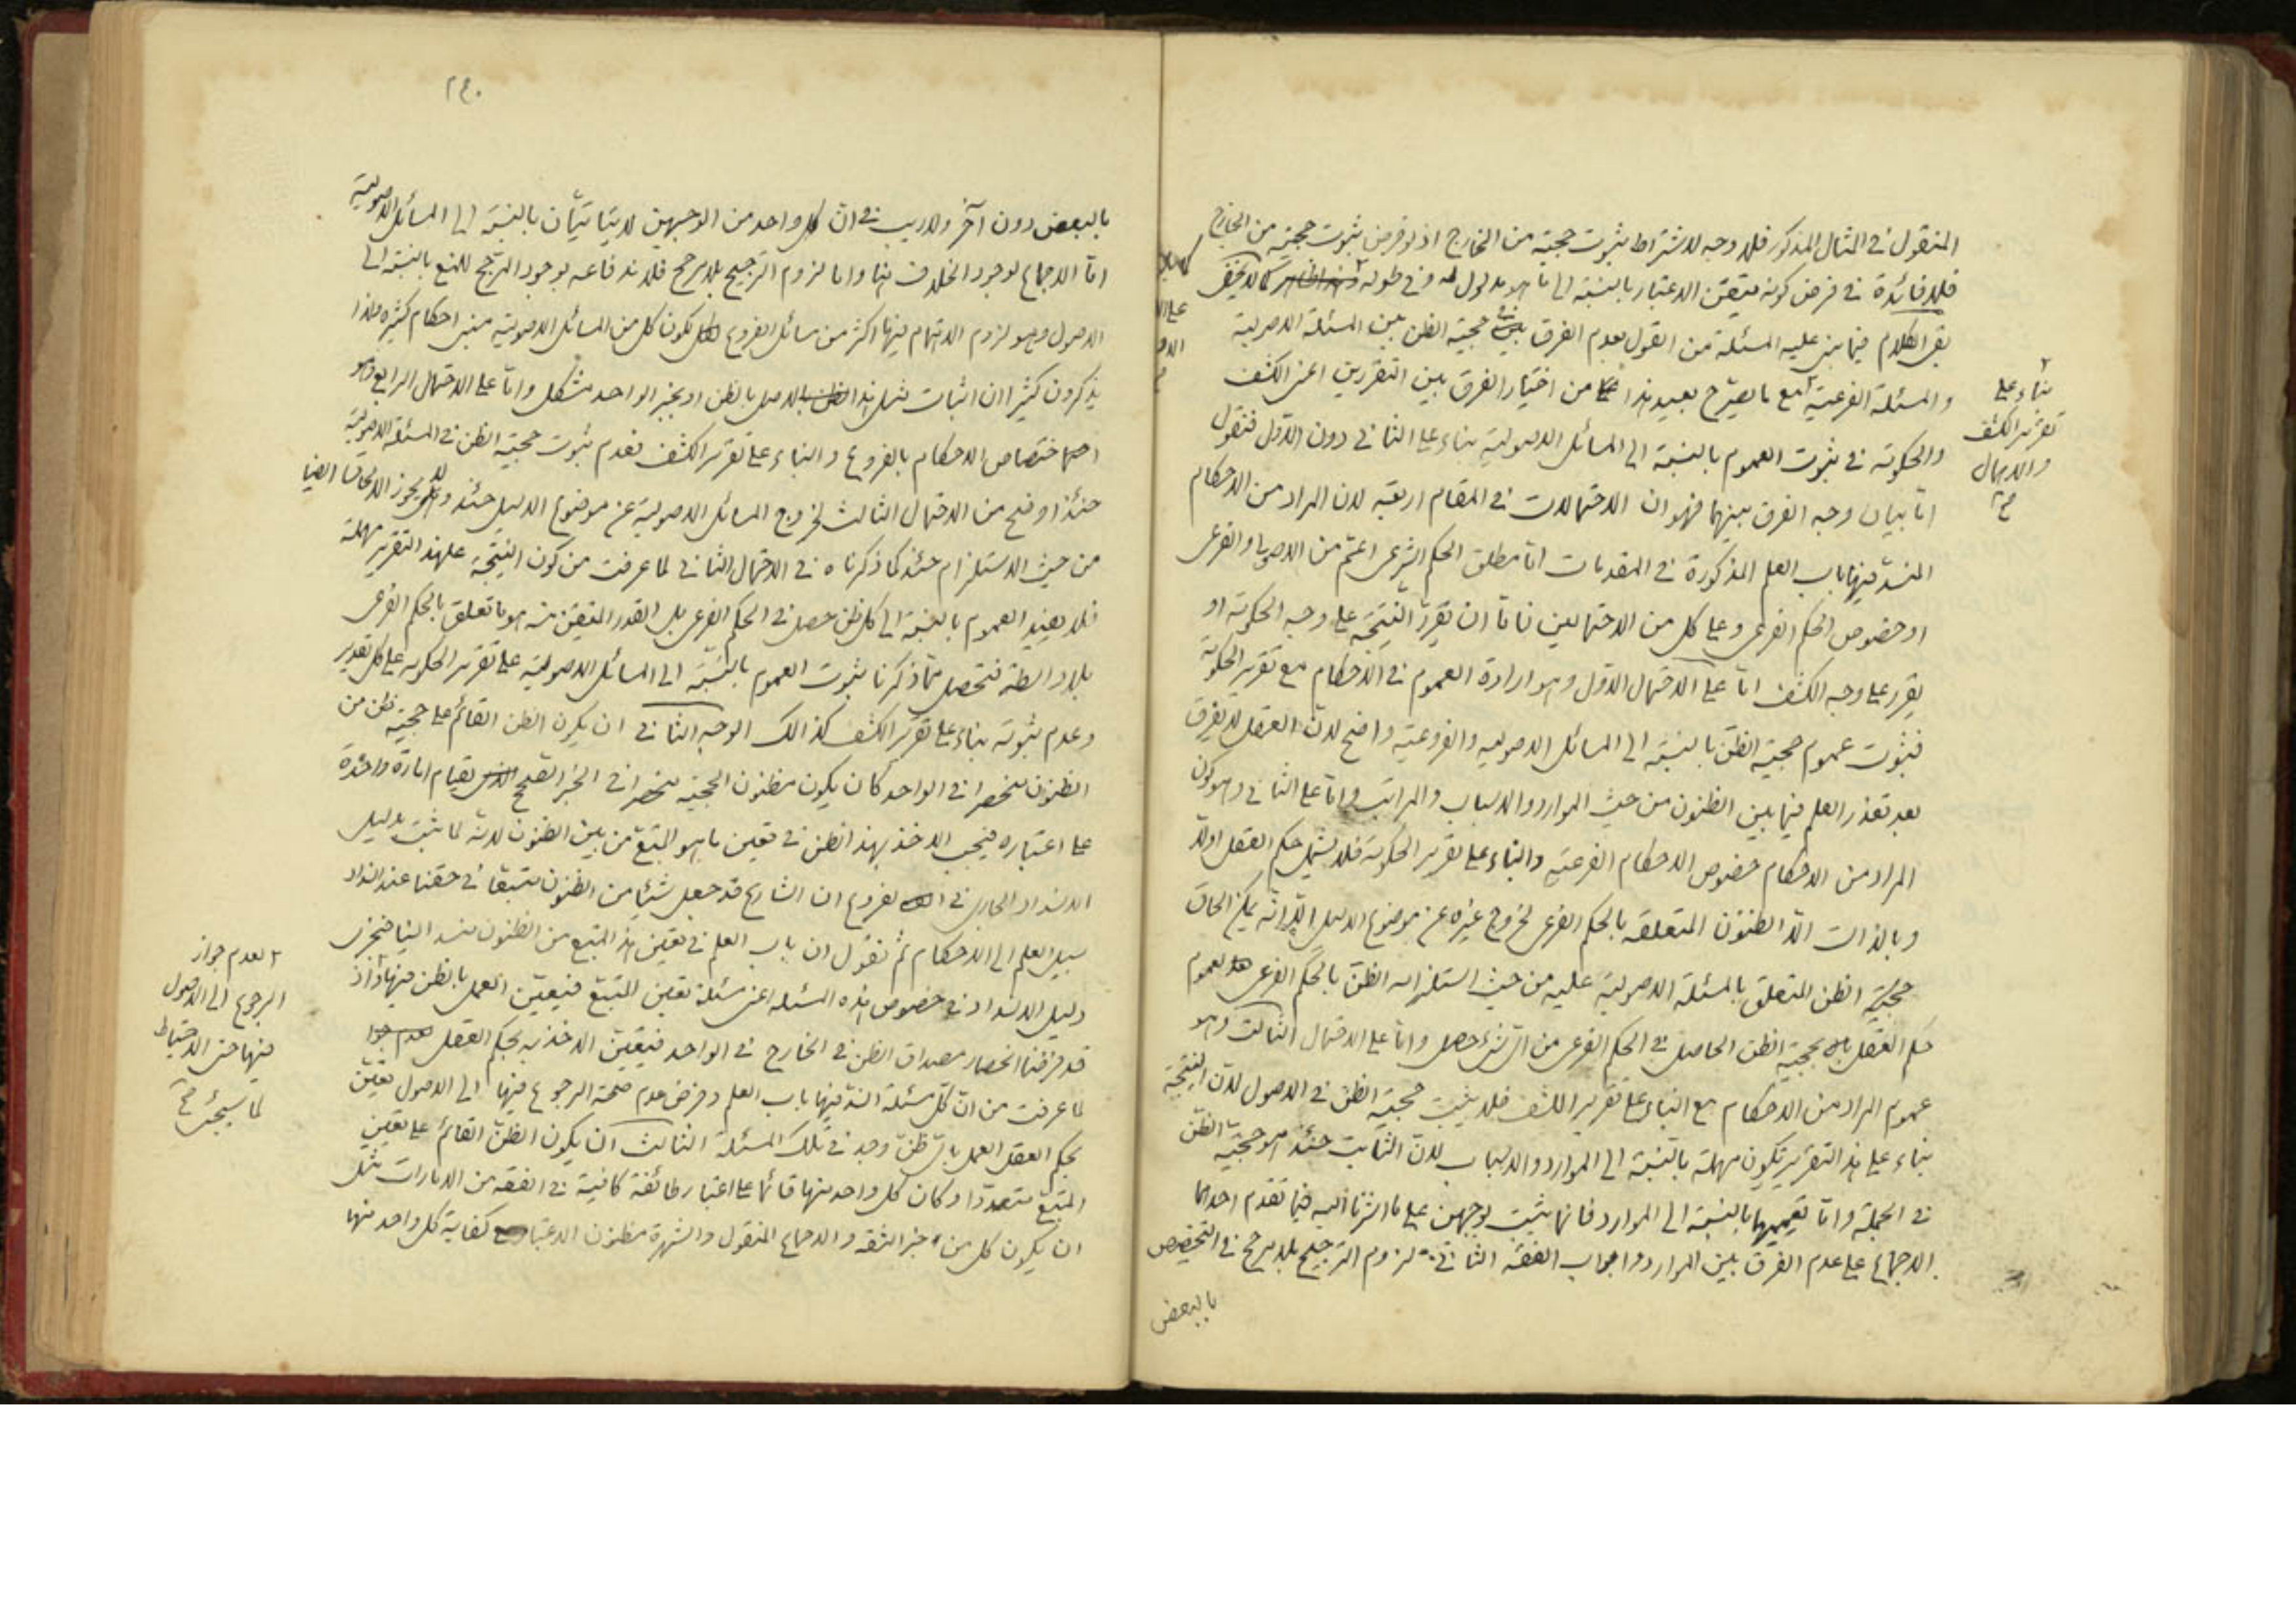 المنقول في المثال المذكور فلا وجه لاشتراط ثبوت حجية من الخارج اذ لو فرض ثبوت حجيته من الخارج
فلا فائدة في فرض كونه متيقن الاعتبار بالنسبة الى ما هو مدلول له وفي طوله كما لا يخفى
بقى الكلام فيما بنى عليه المسئلة من القول بعدم الفرق في حجية الظن بين المسئلة الاصولية
والمسئلة الفرعية مع ما يصرّح بعيد هذا من اختيار الفرق بين التقريرين اعنى الكشف
والحكومة في ثبوت العموم بالنسبة الى المسائل الاصولية بناء على الثاني دون الاول فنقول
امّا بيان وجه الفرق بينهما فهو ان الاحتمالات في المقام اربعة لان المراد من الاحكام
المنسدّ فيها باب العلم المذكورة في المقدمات امّا مطلق الحكم الشرعى اعمّ من الاصولى والفرعى
او خصوص الحكم الفرعى وعلى كل من الاحتمالين فامّا ان يقرّر النتيجة على وجه الحكومة او
يقرر على وجه الكشف امّا على الاحتمال الاول وهو ارادة العموم في الاحكام مع تقرير الحكومة
فثبوت عموم حجية الظنّ بالنسبة الى المسائل الاصوليه والفروعية واضح لانّ العقل لا يفرق
بعد تعذر العلم فيما بين الظنون من حيث الموارد والاسباب والمراتب وامّا على الثاني وهو كون
المراد من الاحكام خصوص الاحكام الفرعية والبناء على تقرير الحكومة فلا يشمل حكم العقل اولا
وبالذات الّا الظنون المتعلقة بالحكم الفرعى لخروج غيره عن موضوع الدليل الّا انّه يمكن الحاق
حجيّة الظن المتعلق بالمسئلة الاصولية عليه من حيث استلزامه الظنّ بالحكم الفرعى لعموم
حكم العقل بحجية الظن الحاصل في الحكم الفرعى من اىّ شئ حصل وامّا على الاحتمال الثالث وهو
عموم المراد من الاحكام مع البناء على تقرير الكشف فلا يثبت حجية الظن في الاصول لانّ النتيجة
بناء على هذا التقرير يكون مهملة بالنسبة الى الموارد والاسباب لانّ الثابت حينئذ هو حجيّة الظنّ
في الجملة وامّا تعميمها بالنسبة الى الموارد فانما يثبت بوجهين على ما اشرنا اليه فيما تقدم احدهما
الاجماع على عدم الفرق بين الموارد وابواب الفقه الثاني لزوم الترجيح بلا مرجح في التخصيص
بالبعض
بناء على
تقرير الكشف
والاهمال
صح
٢٤٠
بالبعض دون آخر ولا ريب في انّ كل واحد من الوجهين لا يتاتيان بالنسبة الى المسائل الاصولية
امّا الاجماع لوجود الخلاف فيها واما لزوم الترجيح بلا مرجح فلاندفاعه بوجود المرجح للمنع بالنسبة الى
الاصول وهو لزوم الاهتمام فيها اكثر من مسائل الفروع لكون كل من المسائل الاصولية مبنى احكام كثيره ولذا
يذكرون كثيرا ان اثبات مثل هذا الاصل بالظن او بخبر الواحد مشكل وامّا على الاحتمال الرابع وهو
اختصاص الاحكام بالفروع والبناء على تقرير الكشف فعدم ثبوت حجية الظن في المسئلة الاصولية
حينئذ اوضح من الاحتمال الثالث لخروج المسائل الاصولية عن موضوع الدليل حينئذ ولا يجوز الالحاق ايضا
من حيث الاستلزام حينئذ كما ذكرناه في الاحتمال الثاني لما عرفت من كون النتيجة على هذا التقرير مهملة
فلا يفيد العموم بالنسبة الى كل ظن حصل في الحكم الفرعى بل القدر المتيقن منه هو ما تعلق بالحكم الفرعى
بلا واسطة فتحصل ممّا ذكرنا ثبوت العموم بالنسبة الى المسائل الاصولية على تقرير الحكومه على كل تقدير
وعدم ثبوته بناء على تقرير الكشف كذلك الوجه الثاني ان يكون الظن القائم على حجية ظن من
الظنون منحصرا في الواحد كان يكون مظنون الحجية منحصرا في الخبر الصحيح بقيام امارة واحدة
على اعتباره فيجب الاخذ بهذا الظن في تعيين ما هو المتبع من بين الظنون لانه لما ثبت بدليل
الانسداد الجارى في الفروع ان الشارع قد جعل شيئا من الظنون متبعا في حقنا عند انسداد
سبيل العلم الى الاحكام ثم نقول ان باب العلم في تعيين هذا المتبع من الظنون منسد ايضا فيجرى
دليل الانسداد في خصوص هذه المسئله اعنى مسئلة تعيين المتبع فيتعيّن العمل بالظن فيها واذ
قد فرضنا انحصار مصداق الظن في الخارج في الواحد فيتعيّن الاخذ به بحكم العقل
لما عرفت من انّ كل مسئلة انسدّ فيها باب العلم وفرض عدم صحة الرجوع فيها الى الاصول تعيّن
بحكم العقل العمل باىّ ظنّ وجد في تلك المسئلة الثالث ان يكون الظنّ القائم على تعيين
المتبّع متعددّا وكان كل واحد منها قائما على اعتبار طائفة كافية في الفقه من الامارات مثل
ان يكون كل من خبر الثقه والاجماع المنقول والشهرة مظنون الاعتبار مع كفاية كل واحد منها
لعدم جواز
الرجوع الى الاصول
فيها حتى الاحتياط
لما سيجئ صح